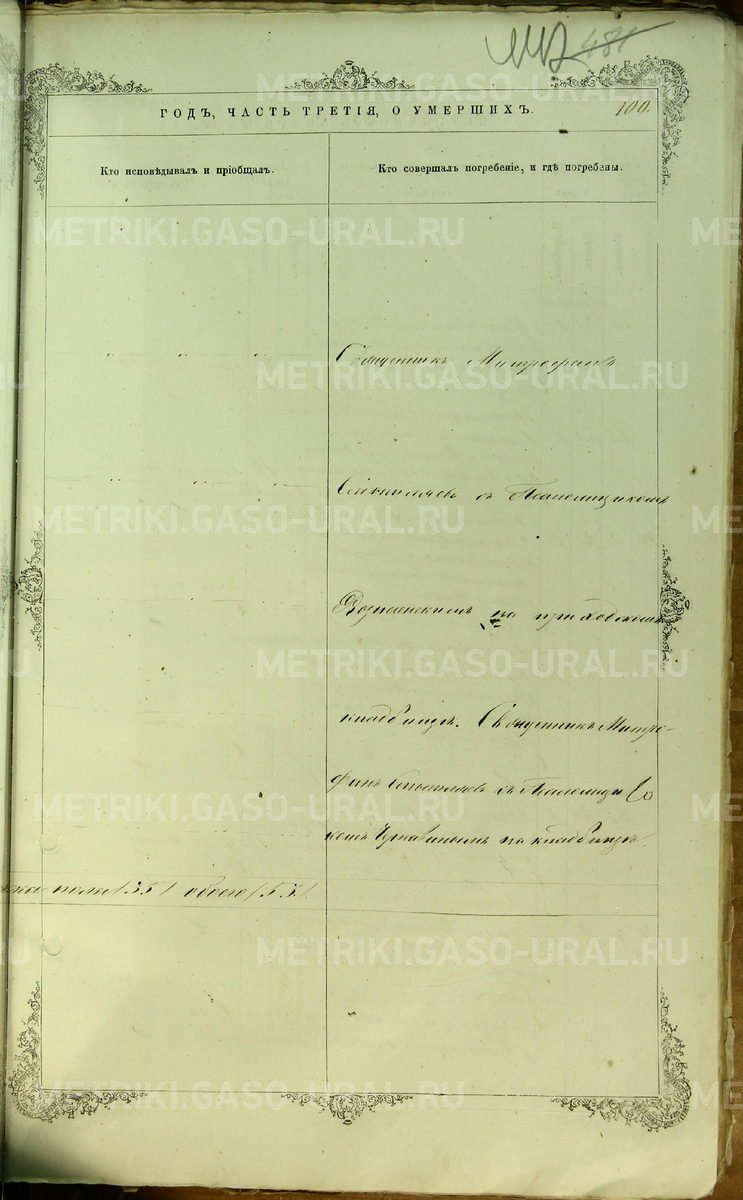 481
ГОДЪ, ЧАСТЬ ТРЕТІЯ, О УМЕРШИХЪ.
100.
Кто исповѣдывалъ и пріобщалъ.
Кто совершалъ погребеніе, и гдѣ погребены.
Священникъ Митрофанъ
съ Псаломщикомъ
на приходскомъ
кладбищѣ. Священникъ Митро-
фанъ съ Псаломщи
комъ на кладбищѣ
пола 35 обоего 53
METRIKI.GASO-URAL.RU